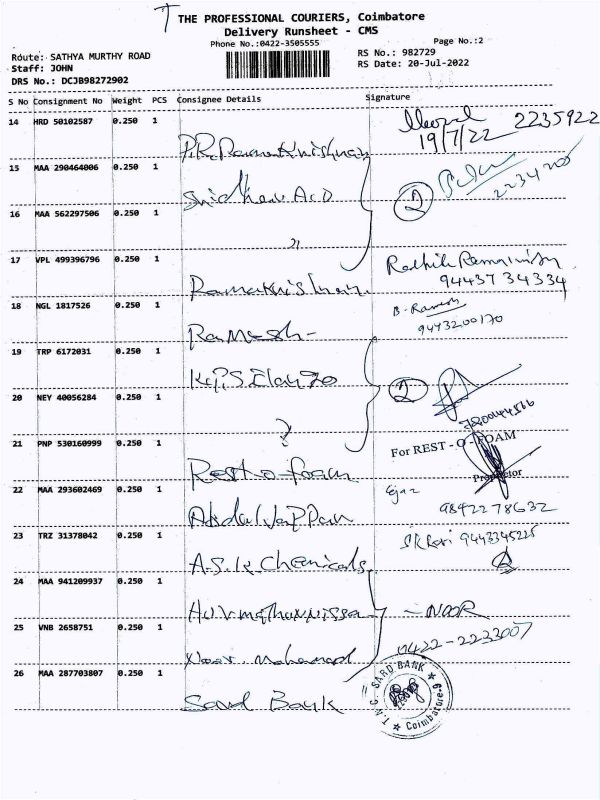 THE PROFESSIONAL COURIERS, Coimbatore
Delivery Runsheet - CMS
Phone No.:0422-3505555
Page No.:2
Route: SATHYA MURTHY ROAD
RS No.: 982729
Staff: JOHN
RS Date: 20-Jul-2022
DRS No.: DCJB98272902
S No Consignment No Weight PCS Consignee Details Signature
14 HRD 50102587 0.250 1 P.R. Ramakrishnan 19/7/22 2235922
15 MAA 290464006 0.250 1 Sridhar ACO 2
16 MAA 562297506 0.250 1 "
17 VPL 499396796 0.250 1 Ramakrishnan 94437 34334
18 NGL 1817526 0.250 1 Ramesh B. Ramesh 9443200170
19 TRP 6172031 0.250 1
20 NEY 40056284 0.250 1 2
21 PNP 530160999 0.250 1 Rest o foam For REST - O - FOAM
Proprietor
22 MAA 293602469 0.250 1 Ejaz 9842278632
23 TRZ 31378042 0.250 1 A.S.K. Chemicals 9443345225
24 MAA 941209937 0.250 1 - NOOR
25 VNB 2658751 0.250 1 Noor Mohamed 0422-2233007
26 MAA 287703807 0.250 1 Sard Bank T.N.C. SARD BANK Coimbatore-9